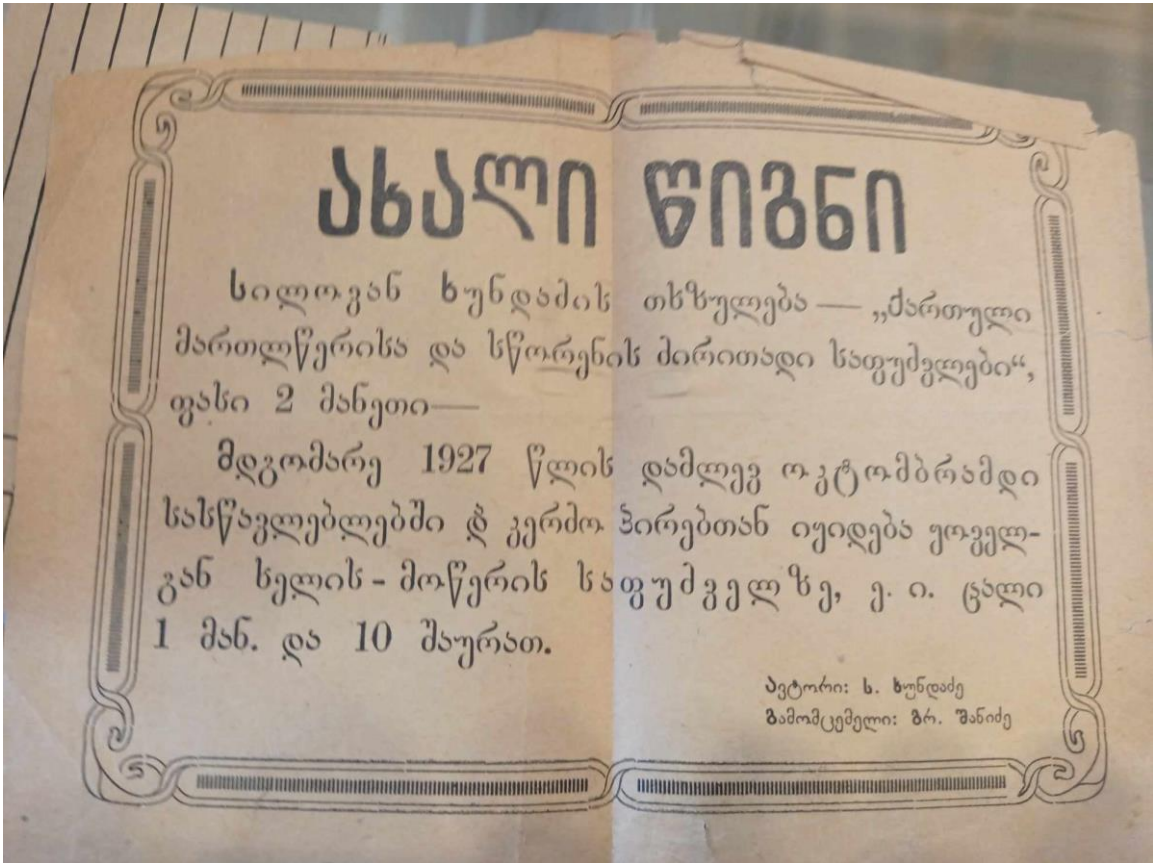 ახალი წიგნი
სილოვან ხუნდაძის თხზულება — „ქართული
მართლწერისა და სწორენის ძირითადი საფუძვლები“,
ფასი 2 მანეთი—
მდგომარე 1927 წლის დამლევ ოკტომბრამდი
სასწავლებლებში და კერძო პირებთან იყიდება ყოველ-
გან ხელის-მოწერის საფუძველზე, ე. ი. ცალი
1 მან. და 10 შაურათ.
ავტორი: ს. ხუნდაძე
გამომცემელი: გრ. შანიძე